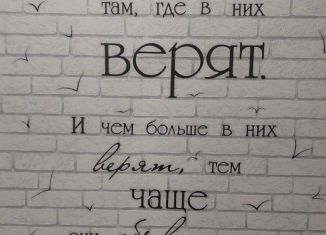 там, где в них
верят.
И чем больше в них
верят, тем
чаще
они